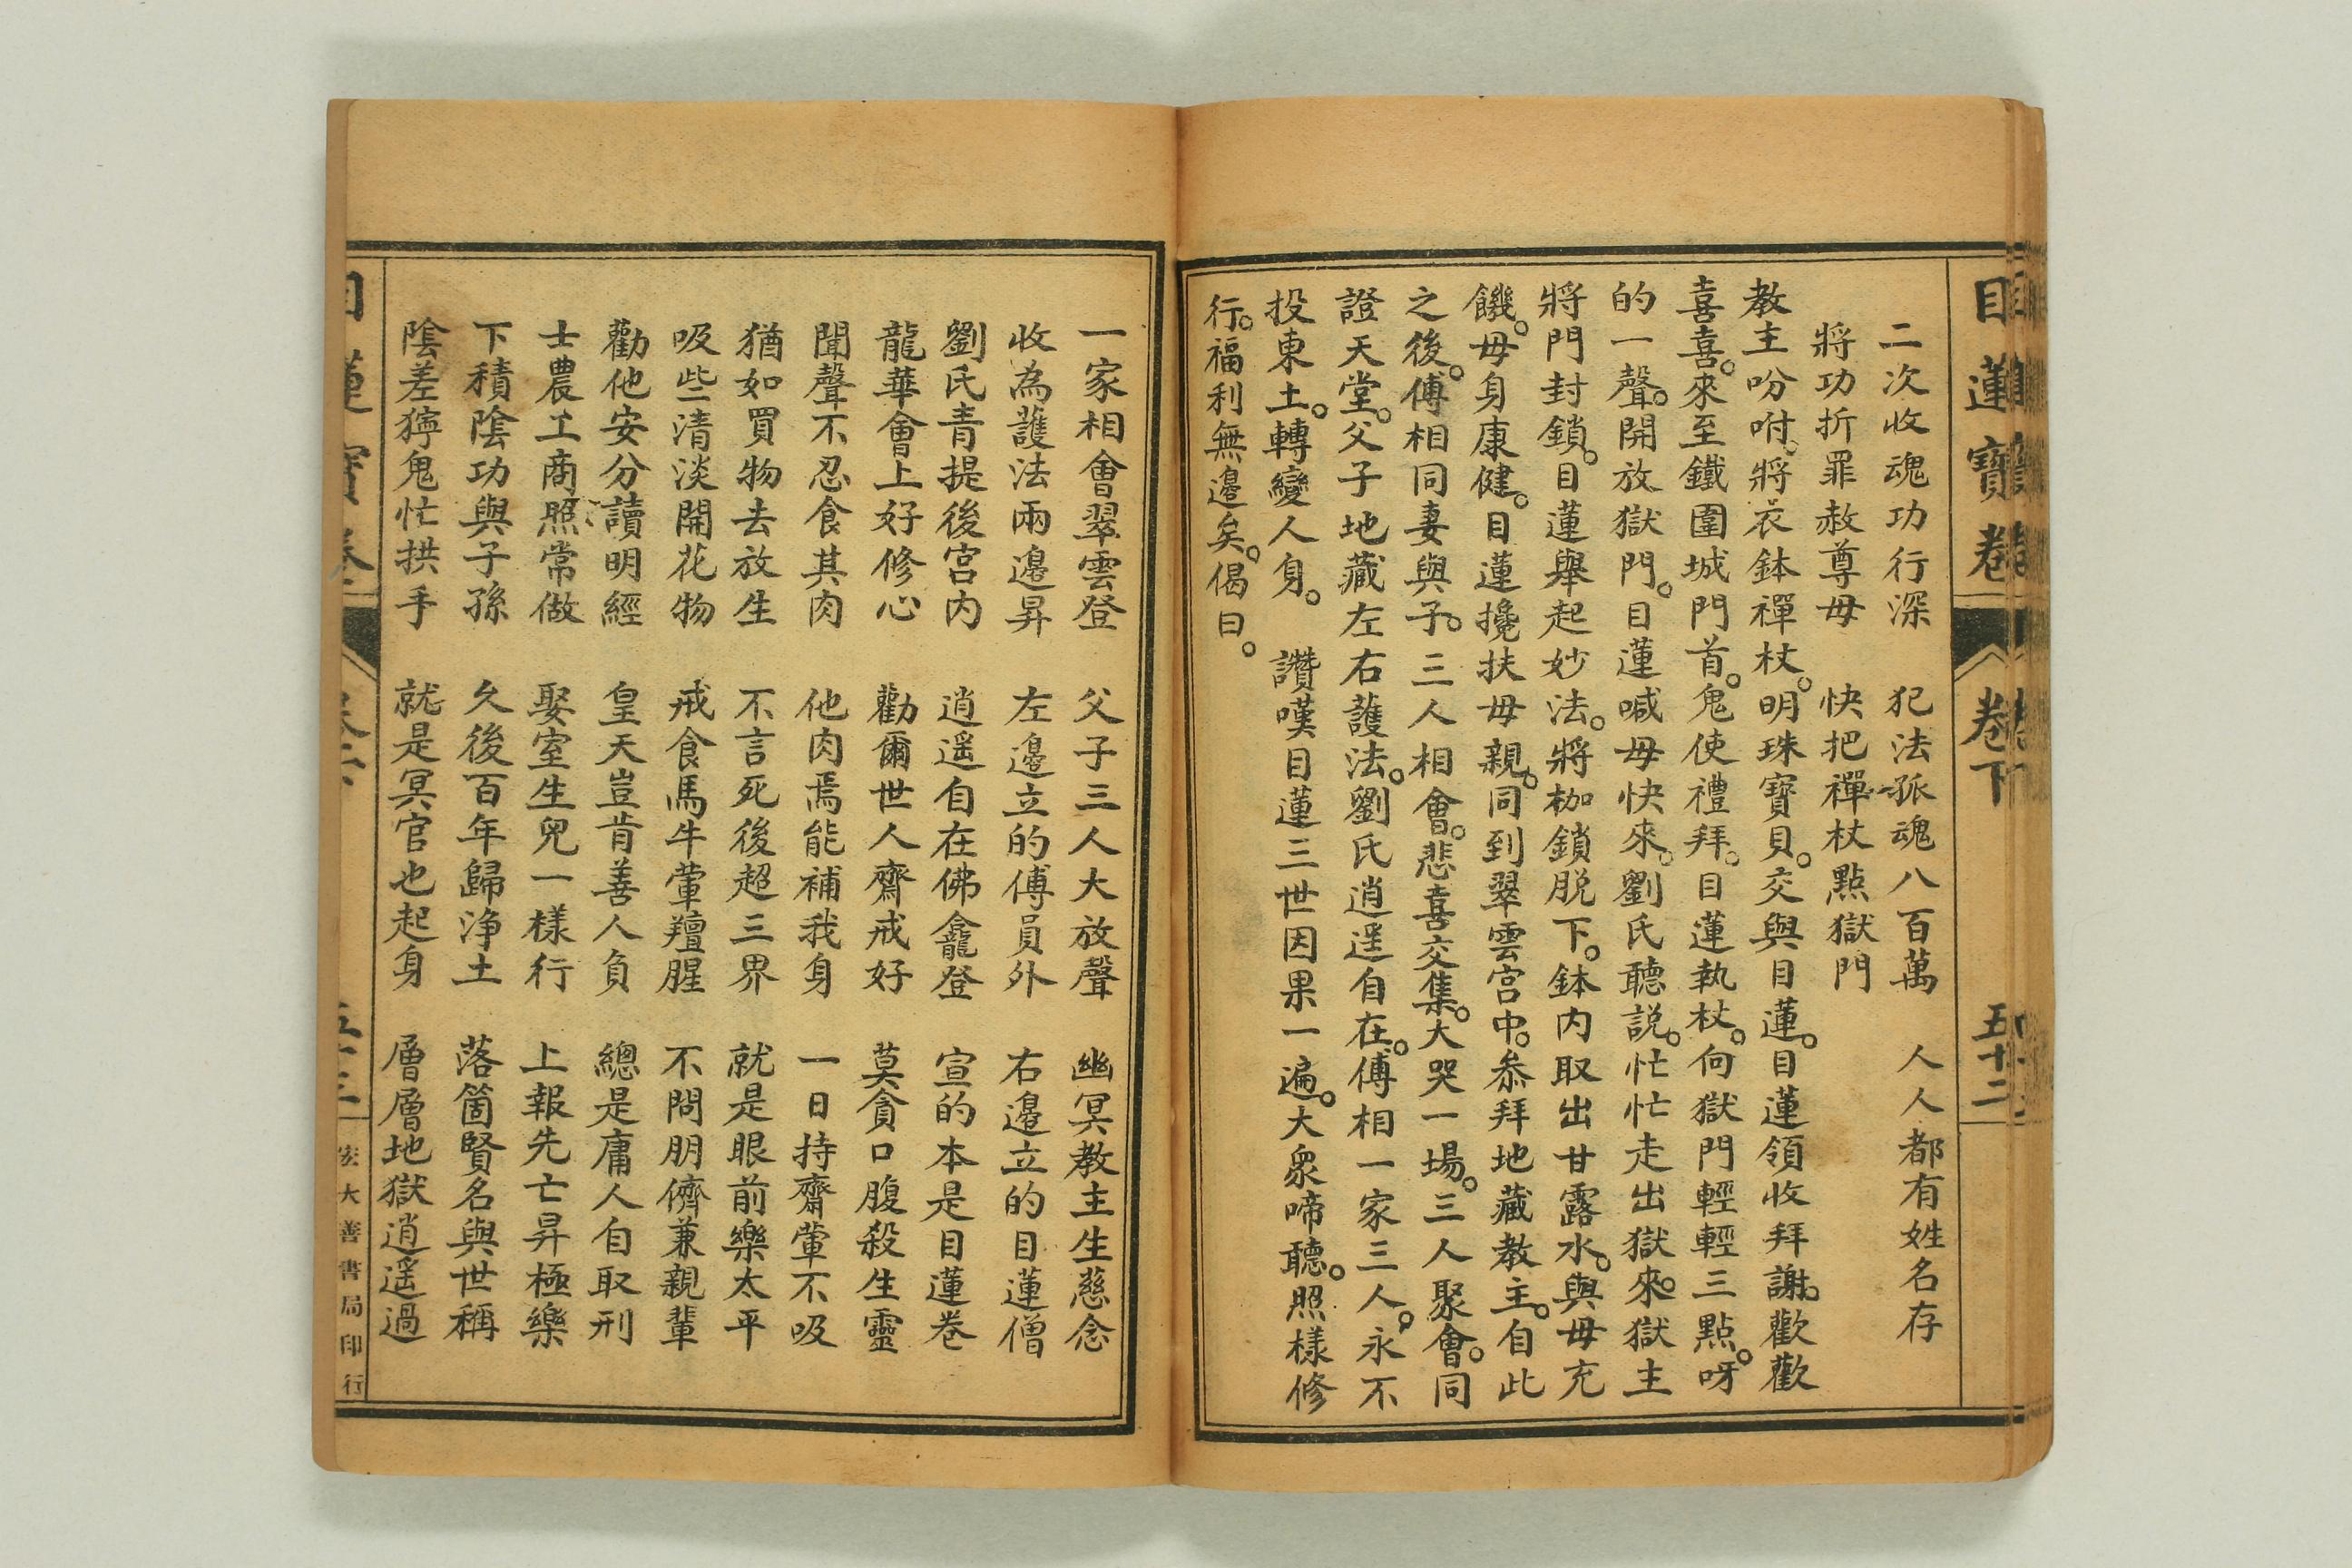 目蓮寶卷 卷下 五十二
二次收魂功行深 犯法孤魂八百萬 人人都有姓名存
將功折罪赦尊母 快把禪杖點獄門
教主吩咐。將衣鉢禪杖。明珠寶貝。交與目蓮。目蓮領收拜謝。歡歡
喜喜。來至鐵圍城門首。鬼使禮拜。目蓮執杖。向獄門輕輕三點。呀
的一聲。開放獄門。目蓮喊母快來。劉氏聽説。忙忙走出獄來。獄主
將門封鎖。目蓮舉起妙法。將枷鎖脱下。鉢内取出甘露水。與母充
饑。母身康健。目蓮攙扶母親。同到翠雲宮中。叅拜地藏教主。自此
之後。傅相同妻與子。三人相會。悲喜交集。大哭一場。三人聚會。同
證天堂。父子地藏左右護法。劉氏逍遥自在。傅相一家三人。永不
投東土。轉變人身。 讚嘆目蓮三世因果一遍。大衆啼聽。照樣修
行。福利無邊矣。偈曰。
一家相會翠雲登 父子三人大放聲 幽冥教主生慈念
收為護法兩邊昇 左邊立的傅員外 右邊立的目蓮僧
劉氏青提後宮内 逍遥自在佛龕登 宣的本是目蓮卷
龍華會上好修心 勸爾世人齋戒好 莫貪口腹殺生靈
聞聲不忍食其肉 他肉焉能補我身 一日持齋葷不吸
猶如買物去放生 不言死後超三界 就是眼前樂太平
吸些清淡開花物 戒食馬牛葷羶腥 不問朋儕兼親輩
勸他安分讀明經 皇天豈肯善人負 總是庸人自取刑
士農工商照常做 娶室生兒一樣行 上報先亡昇極樂
下積陰功與子孫 久後百年歸淨土 落箇賢名與世稱
陰差獰鬼忙拱手 就是冥官也起身 層層地獄逍遥過
宏大善書局印行